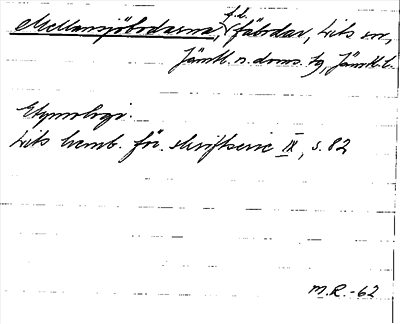 Mellansjöbodarna, f.d. fäbodar, Lits sn,
Jämtl. n. doms. tg, Jämtl. l.
Etymologi.
Lits hemb. för. skriftserie IX, s. 82
M.R.-62